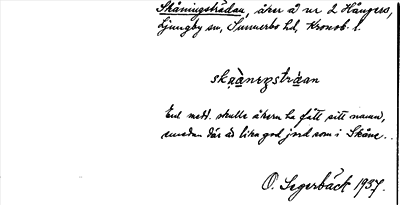 Skåningsträdan, åker å nr 2 Hångers,
Ljungby sn, Sunnerbo hd, Kronob. l.
Enl. medd. skulle åkern ha fått sitt namn,
emedan där är lika god jord som i Skåne.
O. Segerbäck 1937.